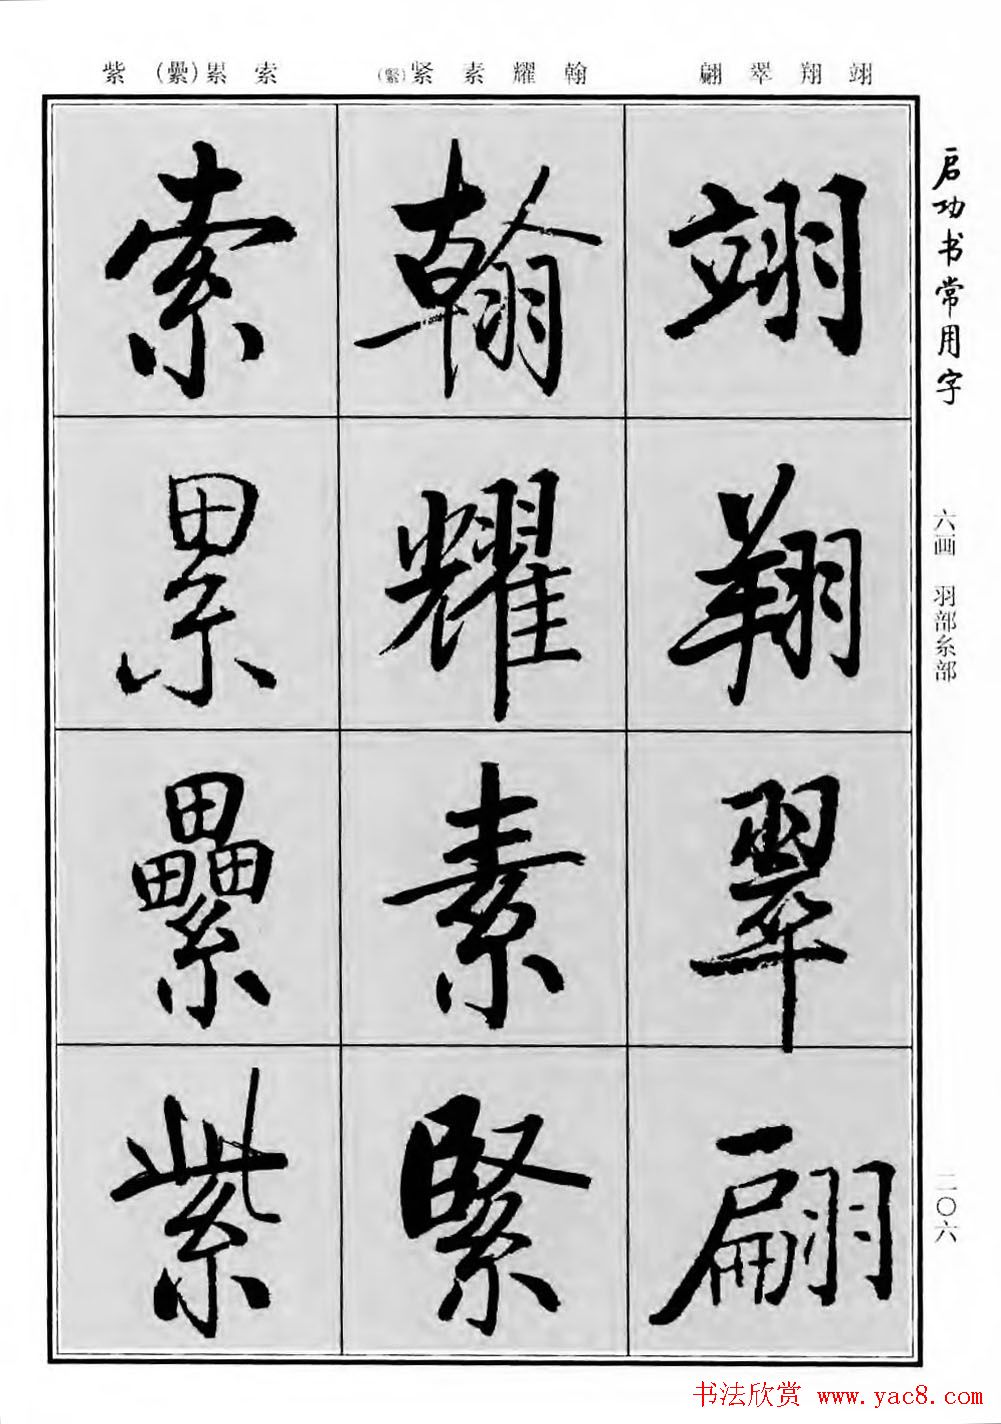 翊翔翠翩
翰耀素紧(緊)
索累(纍)紫
启功书常用字
六画 羽部糸部
二〇六
翊
翔
翠
翩
翰
耀
素
緊
索
累
纍
紫
书法欣赏 www.yac8.com